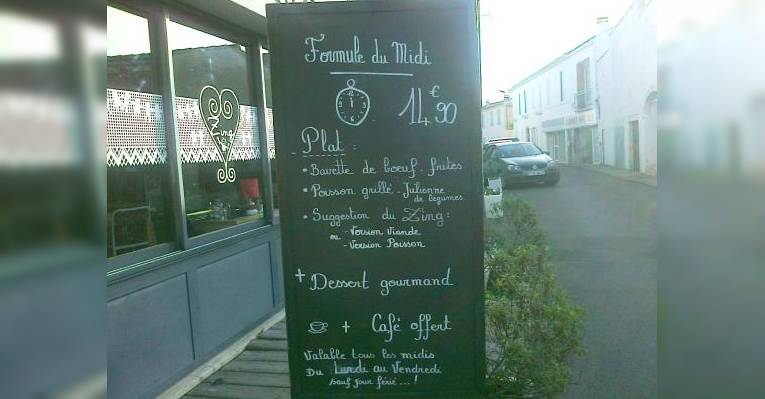 Formule du Midi
14€90
Plat :
• Bavette de boeuf. frites
• Poisson grillé. Julienne
de légumes
• Suggestion du Zing :
- Version Viande
ou
- Version Poisson
+ Dessert gourmand
+ Café offert
Valable tous les midis
Du Lundi au Vendredi
sauf jour férié...!
Zing